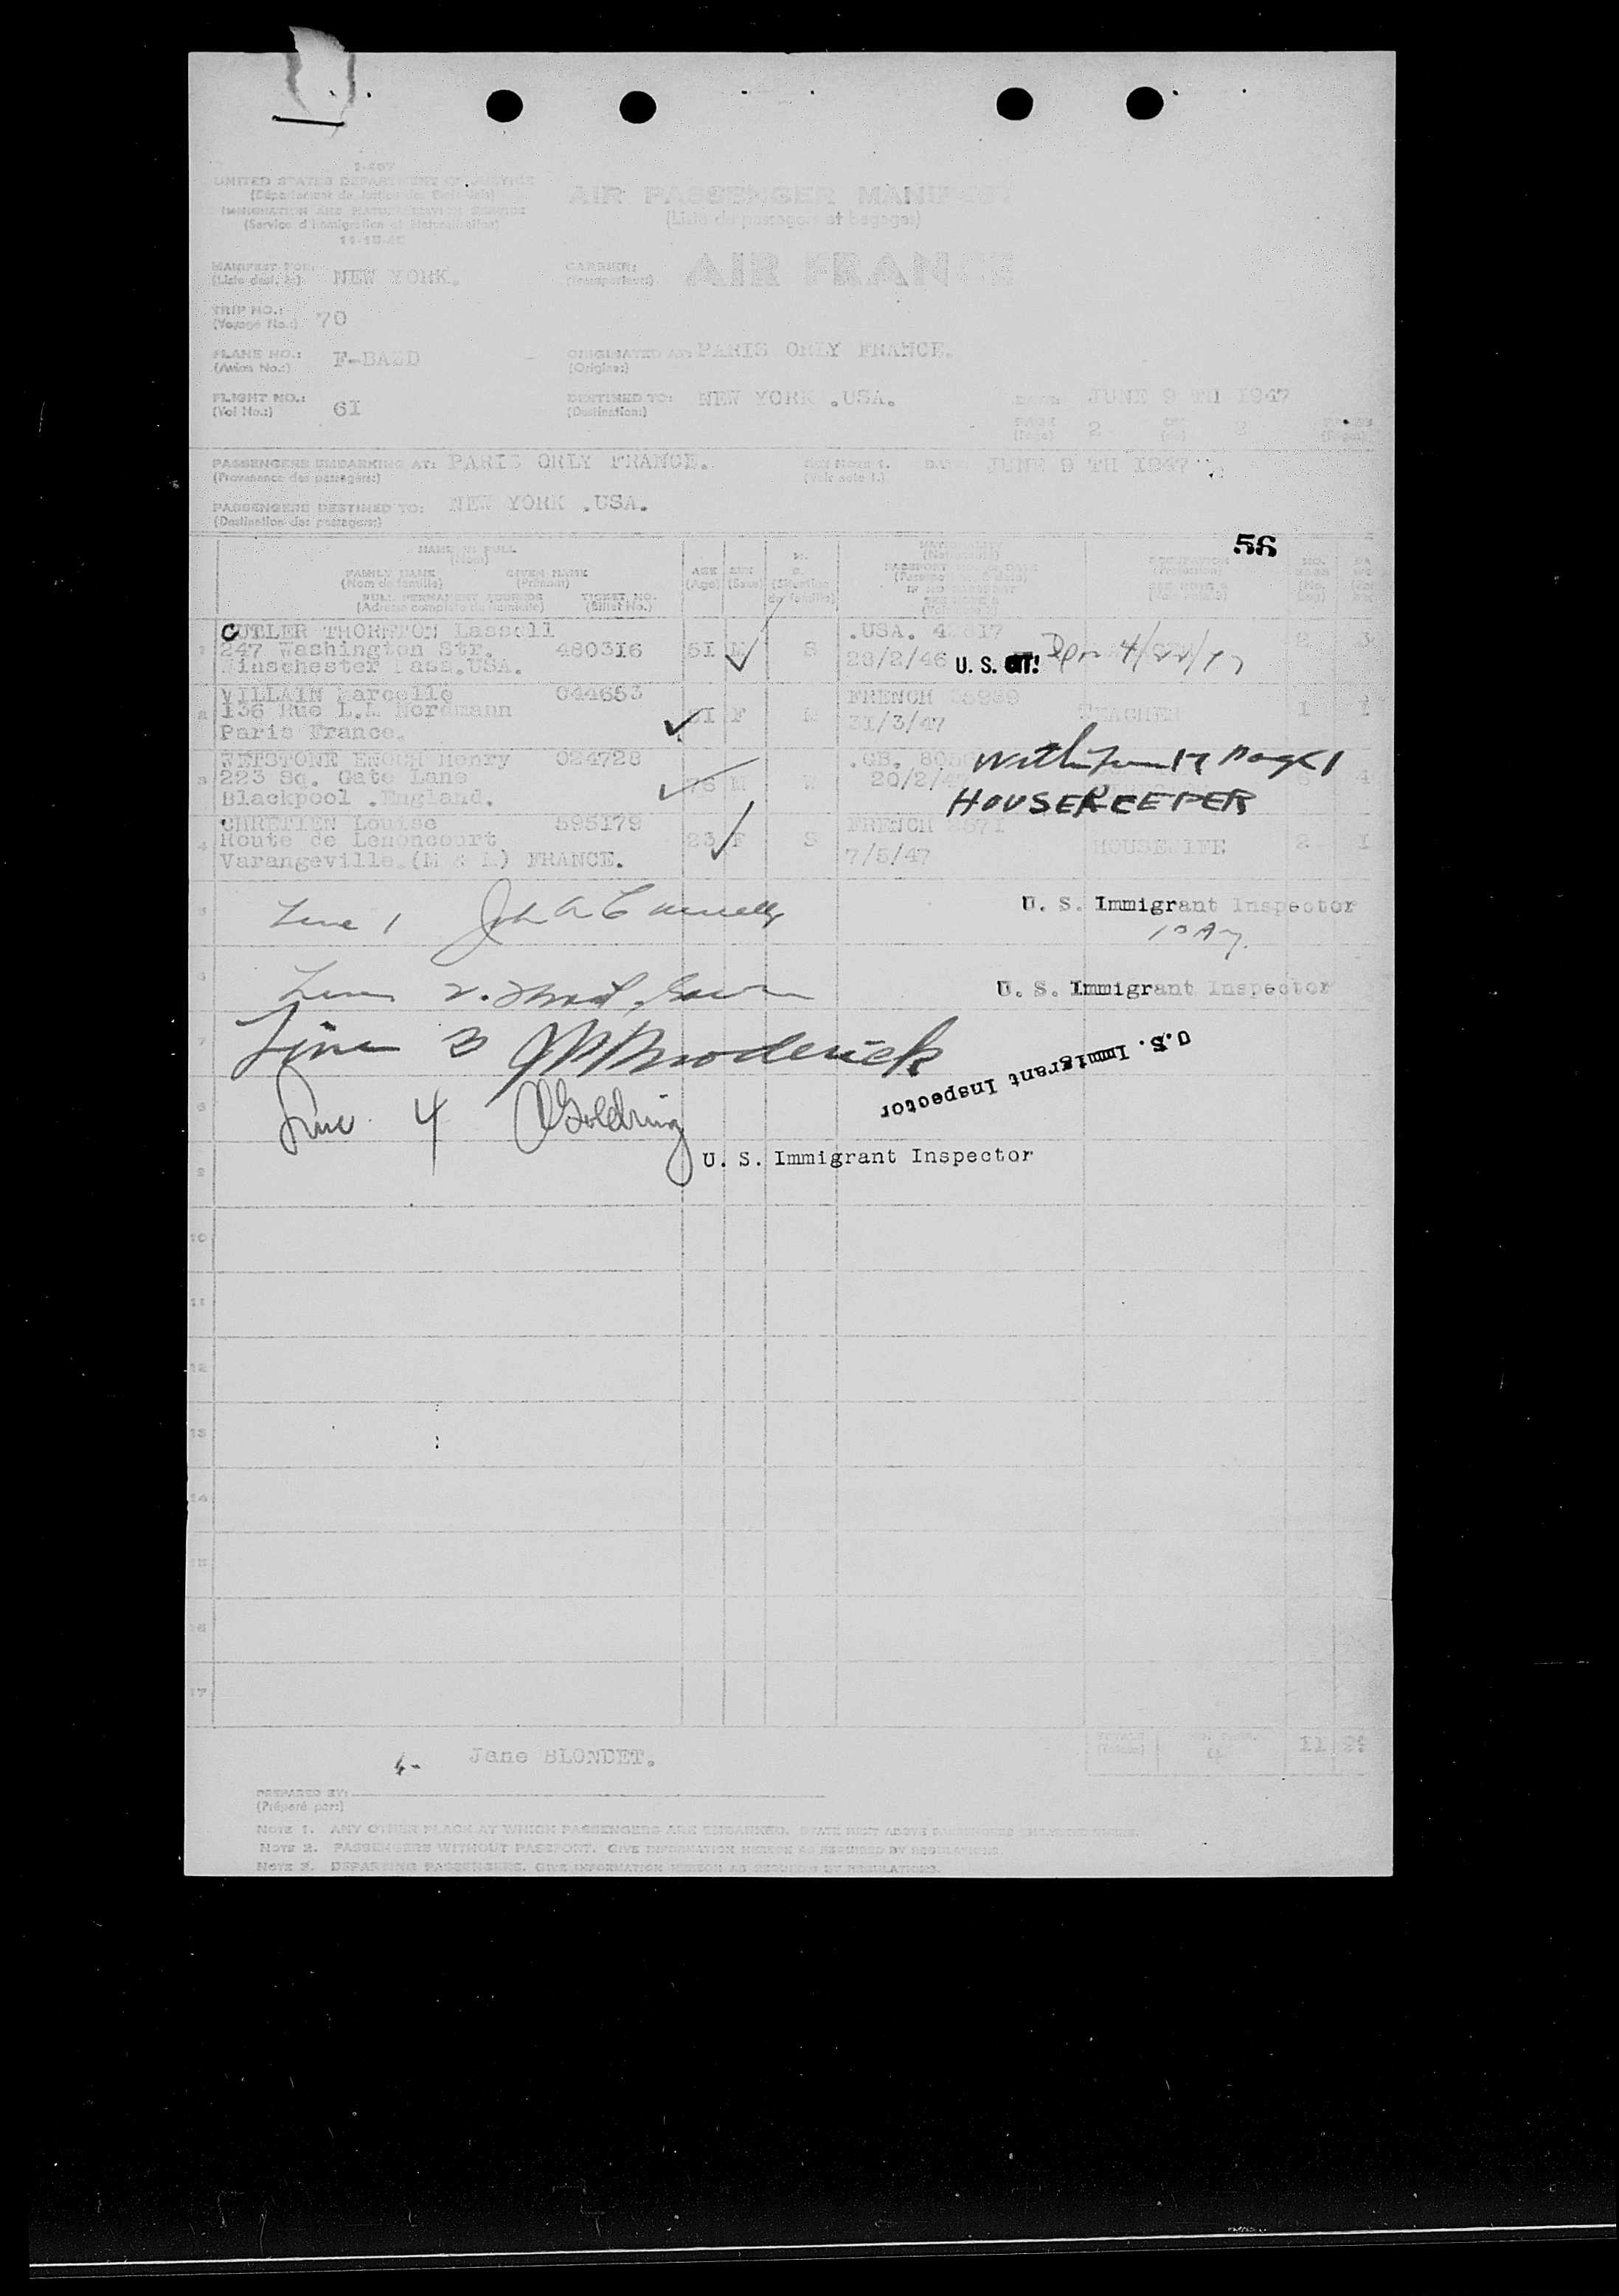 UNITED STATES DEPARTMENT OF JUSTICE
(Département de Justice des Etats-Unis)
IMMIGRATION AND NATURALIZATION SERVICE
(Service d'Immigration et Naturalisation)
AIR PASSENGER MANIFEST
(Liste de passagers et bagages)
MANIFEST FOR: NEW YORK.
CARRIER: AIR FRANCE
(Transporteur:)
TRIP NO.: 70
(Voyage No.:)
PLANE NO.: F-BAZD ORIGINATED AT: PARIS ORLY FRANCE.
(Avion No.:) (Origine:)
FLIGHT NO.: 6I DESTINED TO: NEW YORK .USA. DATE: JUNE 9 TH I947
(Vol No.:) (Destination:)
PAGE 2 OF 2 PAGES
(Page) (de) (Pages)
PASSENGERS EMBARKING AT: PARIS ORLY FRANCE. See Note 1. DATE: JUNE 9 TH I947
(Provenance des passagers:) (Voir note 1.)
PASSENGERS DESTINED TO: NEW YORK .USA.
(Destination des passagers:)
56
NAME IN FULL
(Nom)
FAMILY NAME GIVEN NAME AGE SEX
(Nom de famille) (Prénom) (Age) (Sexe) (Situation de famille)
FULL PERMANENT ADDRESS TICKET NO.
(Adresse complète du domicile) (Billet No.)
OCCUPATION
(Profession)
1 CUTLER THORNTON Lassell .USA.
247 Washington Str. 4803I6 5I M S 2 3
Winschester Mass.USA. 28/2/46 U. S. CIT!
2 VILLAIN Marcelle 044653 FRENCH
I36 Rue L.M Nordmann F TEACHER I I
Paris France. 3I/3/47
3 WETSTONE ENOCH Henry 024728 .GB.
223 Sq. Gate Lane 76 M W 4
Blackpool .England.
HOUSEKEEPER
4 CHRETIEN Louise 595I79 FRENCH
Route de Lenoncourt 23 F S HOUSEWIFE 2 I
Varangeville.(M & M) FRANCE. 7/5/47
5 Line 1 U. S. Immigrant Inspector
6 U. S. Immigrant Inspector
7 Line 3 Broderick U.S. Immigrant Inspector
8 Line 4 Goldring
9 U. S. Immigrant Inspector
10
11
12
13
14
15
16
17
Jane BLONDET.
TOTALS 4 II
PREPARED BY:
(Préparé par:)
NOTE 1. ANY OTHER PLACE AT WHICH PASSENGERS ARE EMBARKED.
NOTE 2. PASSENGERS WITHOUT PASSPORT. GIVE INFORMATION HEREON AS REQUIRED BY REGULATIONS.
NOTE 3. DEPARTING PASSENGERS. GIVE INFORMATION HEREON AS REQUIRED BY REGULATIONS.